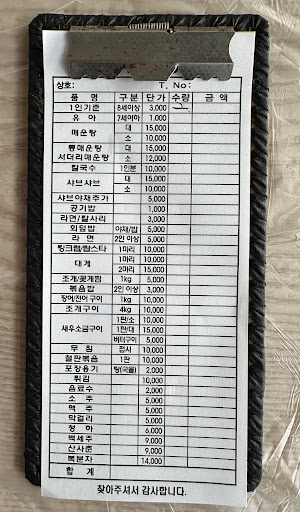 상호: T. No:
품 명 구분 단가 수량 금 액
1인기준 8세이상 3,000
유 아 7세이하 1,000
매운탕 대 15,000
소 10,000
통매운탕 대 15,000
서더리매운탕 소 12,000
칼국수 1인분 10,000
샤브샤브 대 15,000
소 10,000
샤브야채추가 5,000
공기밥 1,000
라면/칼사리 3,000
회덮밥 야채/밥 5,000
라 면 2인 이상 5,000
킹크랩/랍스타 1마리 10,000
대게 1마리 10,000
2마리 15,000
조개/꽃게찜 1kg 10,000
볶음밥 2인 이상 3,000
장어/전어구이 1kg 10,000
조개구이 4kg 10,000
새우소금구이 1판/소 10,000
1판/대 15,000
버터구이 5,000
무 침 접시 10,000
철판볶음 1판 10,000
포장용기 탕(국물) 2,000
튀김 10,000
음료수 2,000
소 주 5,000
맥 주 5,000
막걸리 5,000
청 하 6,000
백세주 9,000
산사춘 9,000
복분자 14,000
합 계
찾아주셔서 감사합니다.